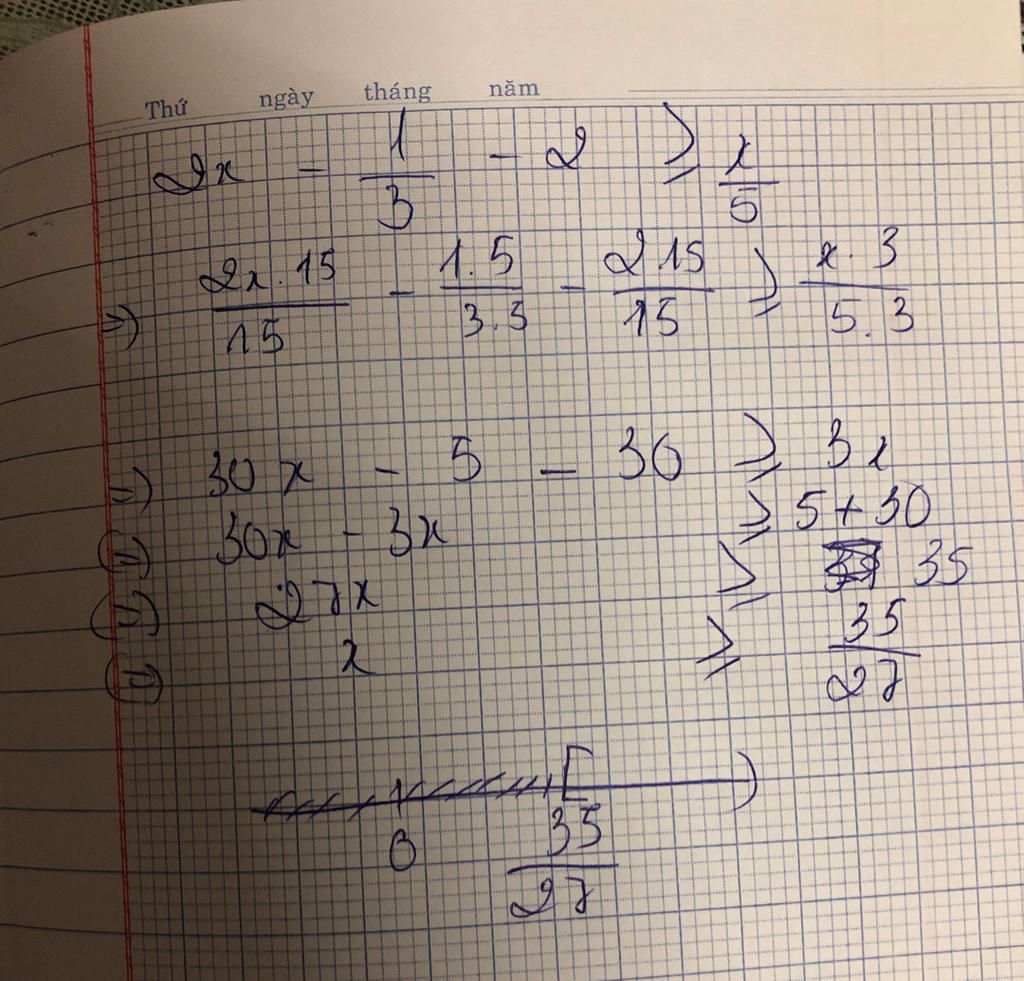 Thứ ngày tháng năm
2x - 1/3 - 2 ≥ x/5
⇒) 2x.15/15 - 1.5/3.3 - 2.15/15 ≥ x.3/5.3
⇒) 30x - 5 - 30 ≥ 3x
⇔ 30x - 3x ≥ 5+30
⇔ 27x ≥ 35
⇔ x ≥ 35/27
0 35/27